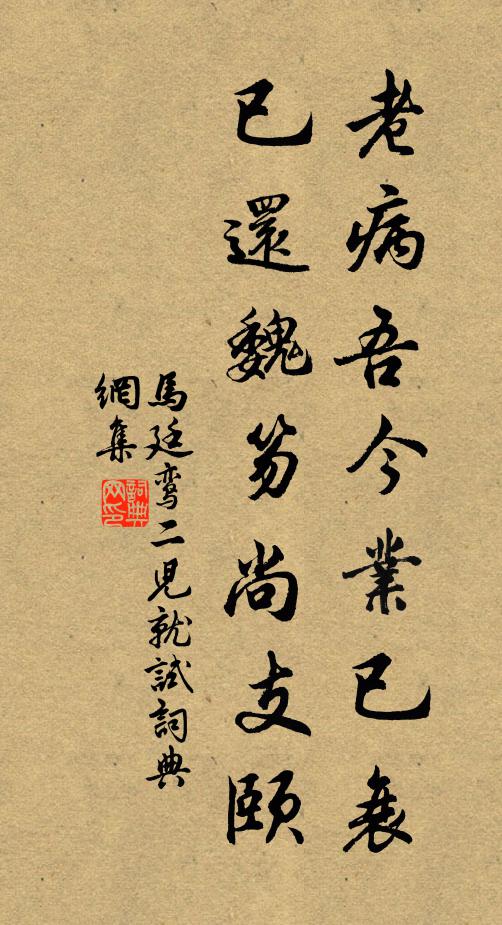 老病吾今業已衰
已還魏笏尚支頤
馬廷鸞二児就試詞典
網集
詞典網印